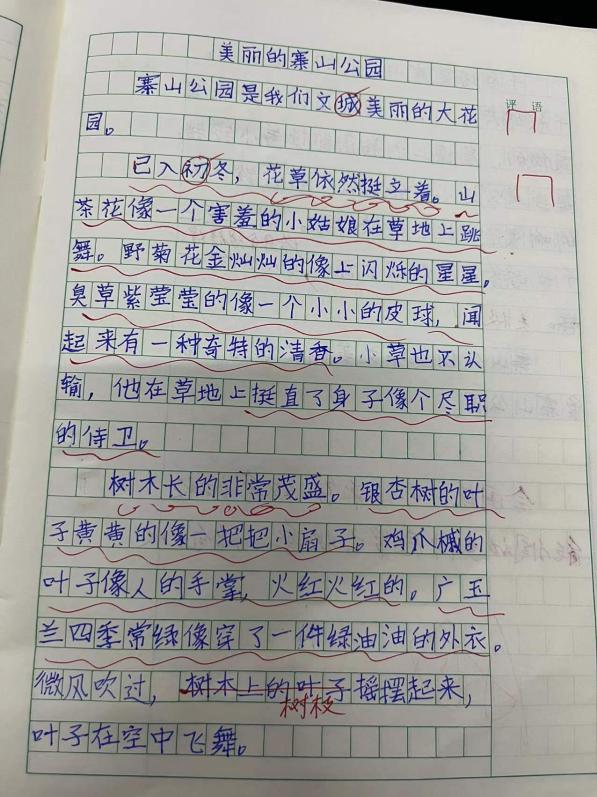 美丽的寨山公园
评语
寨山公园是我们文城美丽的大花
园。
已入初冬，花草依然挺立着。山
茶花像一个害羞的小姑娘在草地上跳
舞。野菊花金灿灿的像上闪烁的星星。
臭草紫莹莹的像一个小小的皮球，闻
起来有一种奇特的清香。小草也不认
输，他在草地上挺直了身子像个尽职
的侍卫。
树木长的非常茂盛。银杏树的叶
子黄黄的像一把把小扇子。鸡爪槭的
叶子像人的手掌，火红火红的。广玉
兰四季常绿像穿了一件绿油油的外衣。
微风吹过，树木上的叶子摇摆起来，
树枝
叶子在空中飞舞。